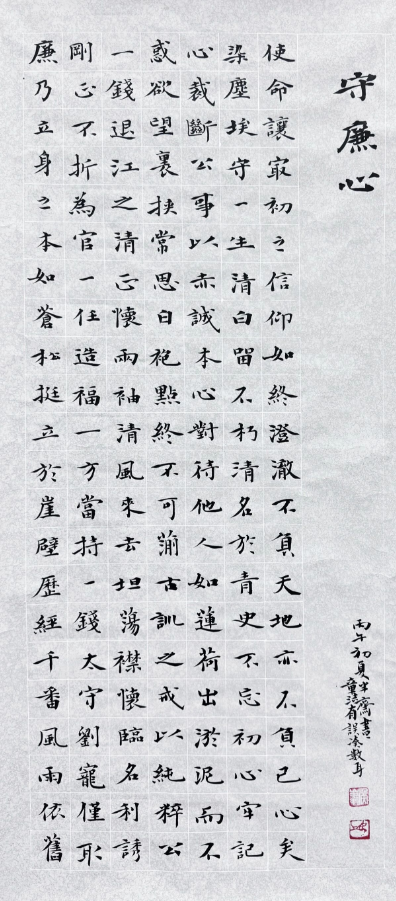 守廉心
廉乃立身之本如蒼松挺立於崖壁歷經千番風雨依舊
剛正不折為官一任造福一方當持一錢太守劉寵僅取
一錢退江之清正懷兩袖清風來去坦蕩襟懷臨名利誘
惑欲望裹挾常思白袍點終不可湔古訓之戒以純粹公
心裁斷公事以赤誠本心對待他人如蓮荷出淤泥而不
染塵埃守一生清白留不朽清名於青史不忘初心牢記
使命讓最初之信仰如終澄澈不負天地亦不負己心矣
丙午初夏齋書
有誤湊數耳